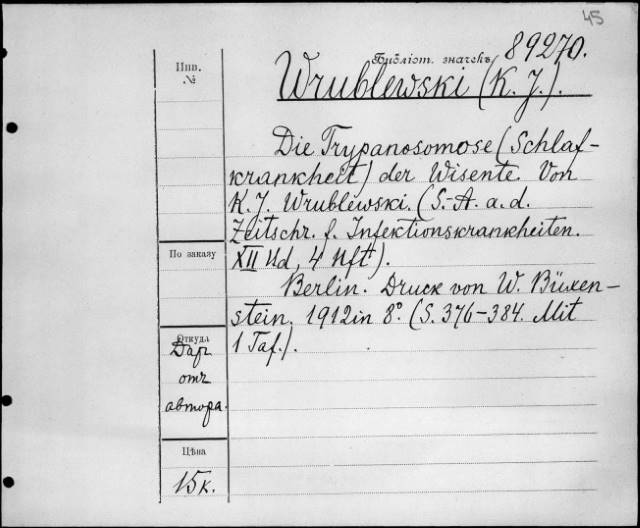 45
Библіот. значекъ 89270.
Инв.
№
Wrublewski (K. J.).
Die Trypanosomose (Schlaf-
krankheit) der Wisente. Von
K. J. Wrublewski. (S.-A. a. d.
Zeitschr. f. Infektionskrankheiten.
XII Bd, 4 Hft).
Berlin. Druck von W. Büxen-
stein. 1912 in 8°. (S. 376-384. Mit
1 Taf.).
По заказу
Откуда
Дар
отъ
автора.
Цѣна
15 к.